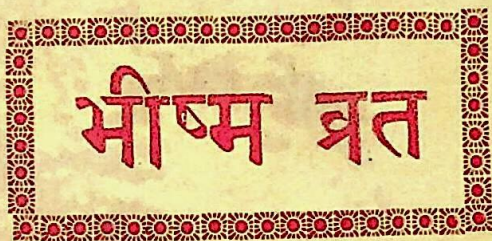 भीष्म व्रत